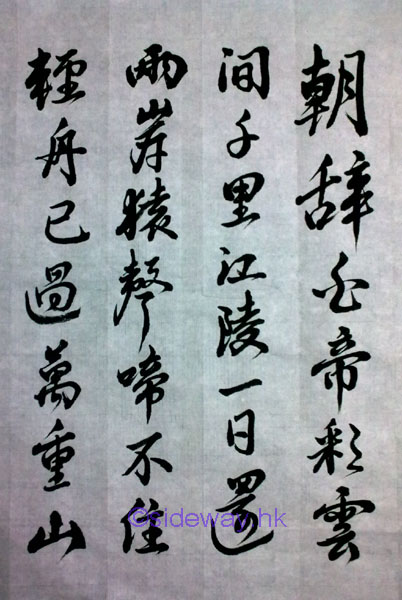 朝辞白帝彩雲
間千里江陵一日還
兩岸猿聲啼不住
輕舟已過萬重山
©sideway.hk